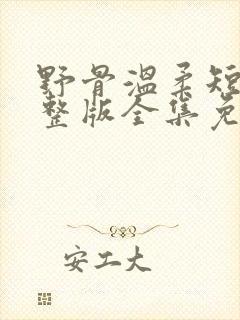 野骨温柔短
整版全集免
安工大